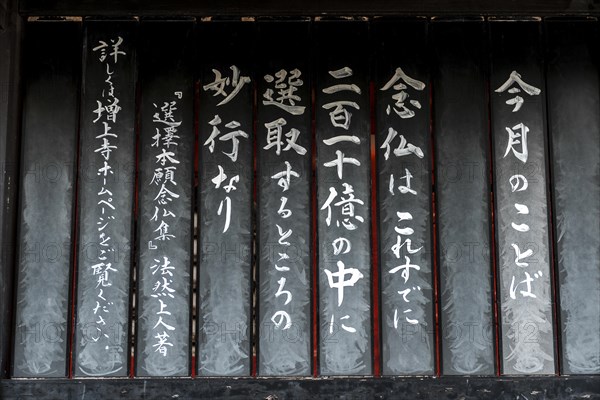 今月のことば
念仏はこれすでに
二百一十億の中に
選取するところの
妙行なり
『選擇本願念仏集』法然上人著
詳しくは増上寺ホームページをご覧ください。